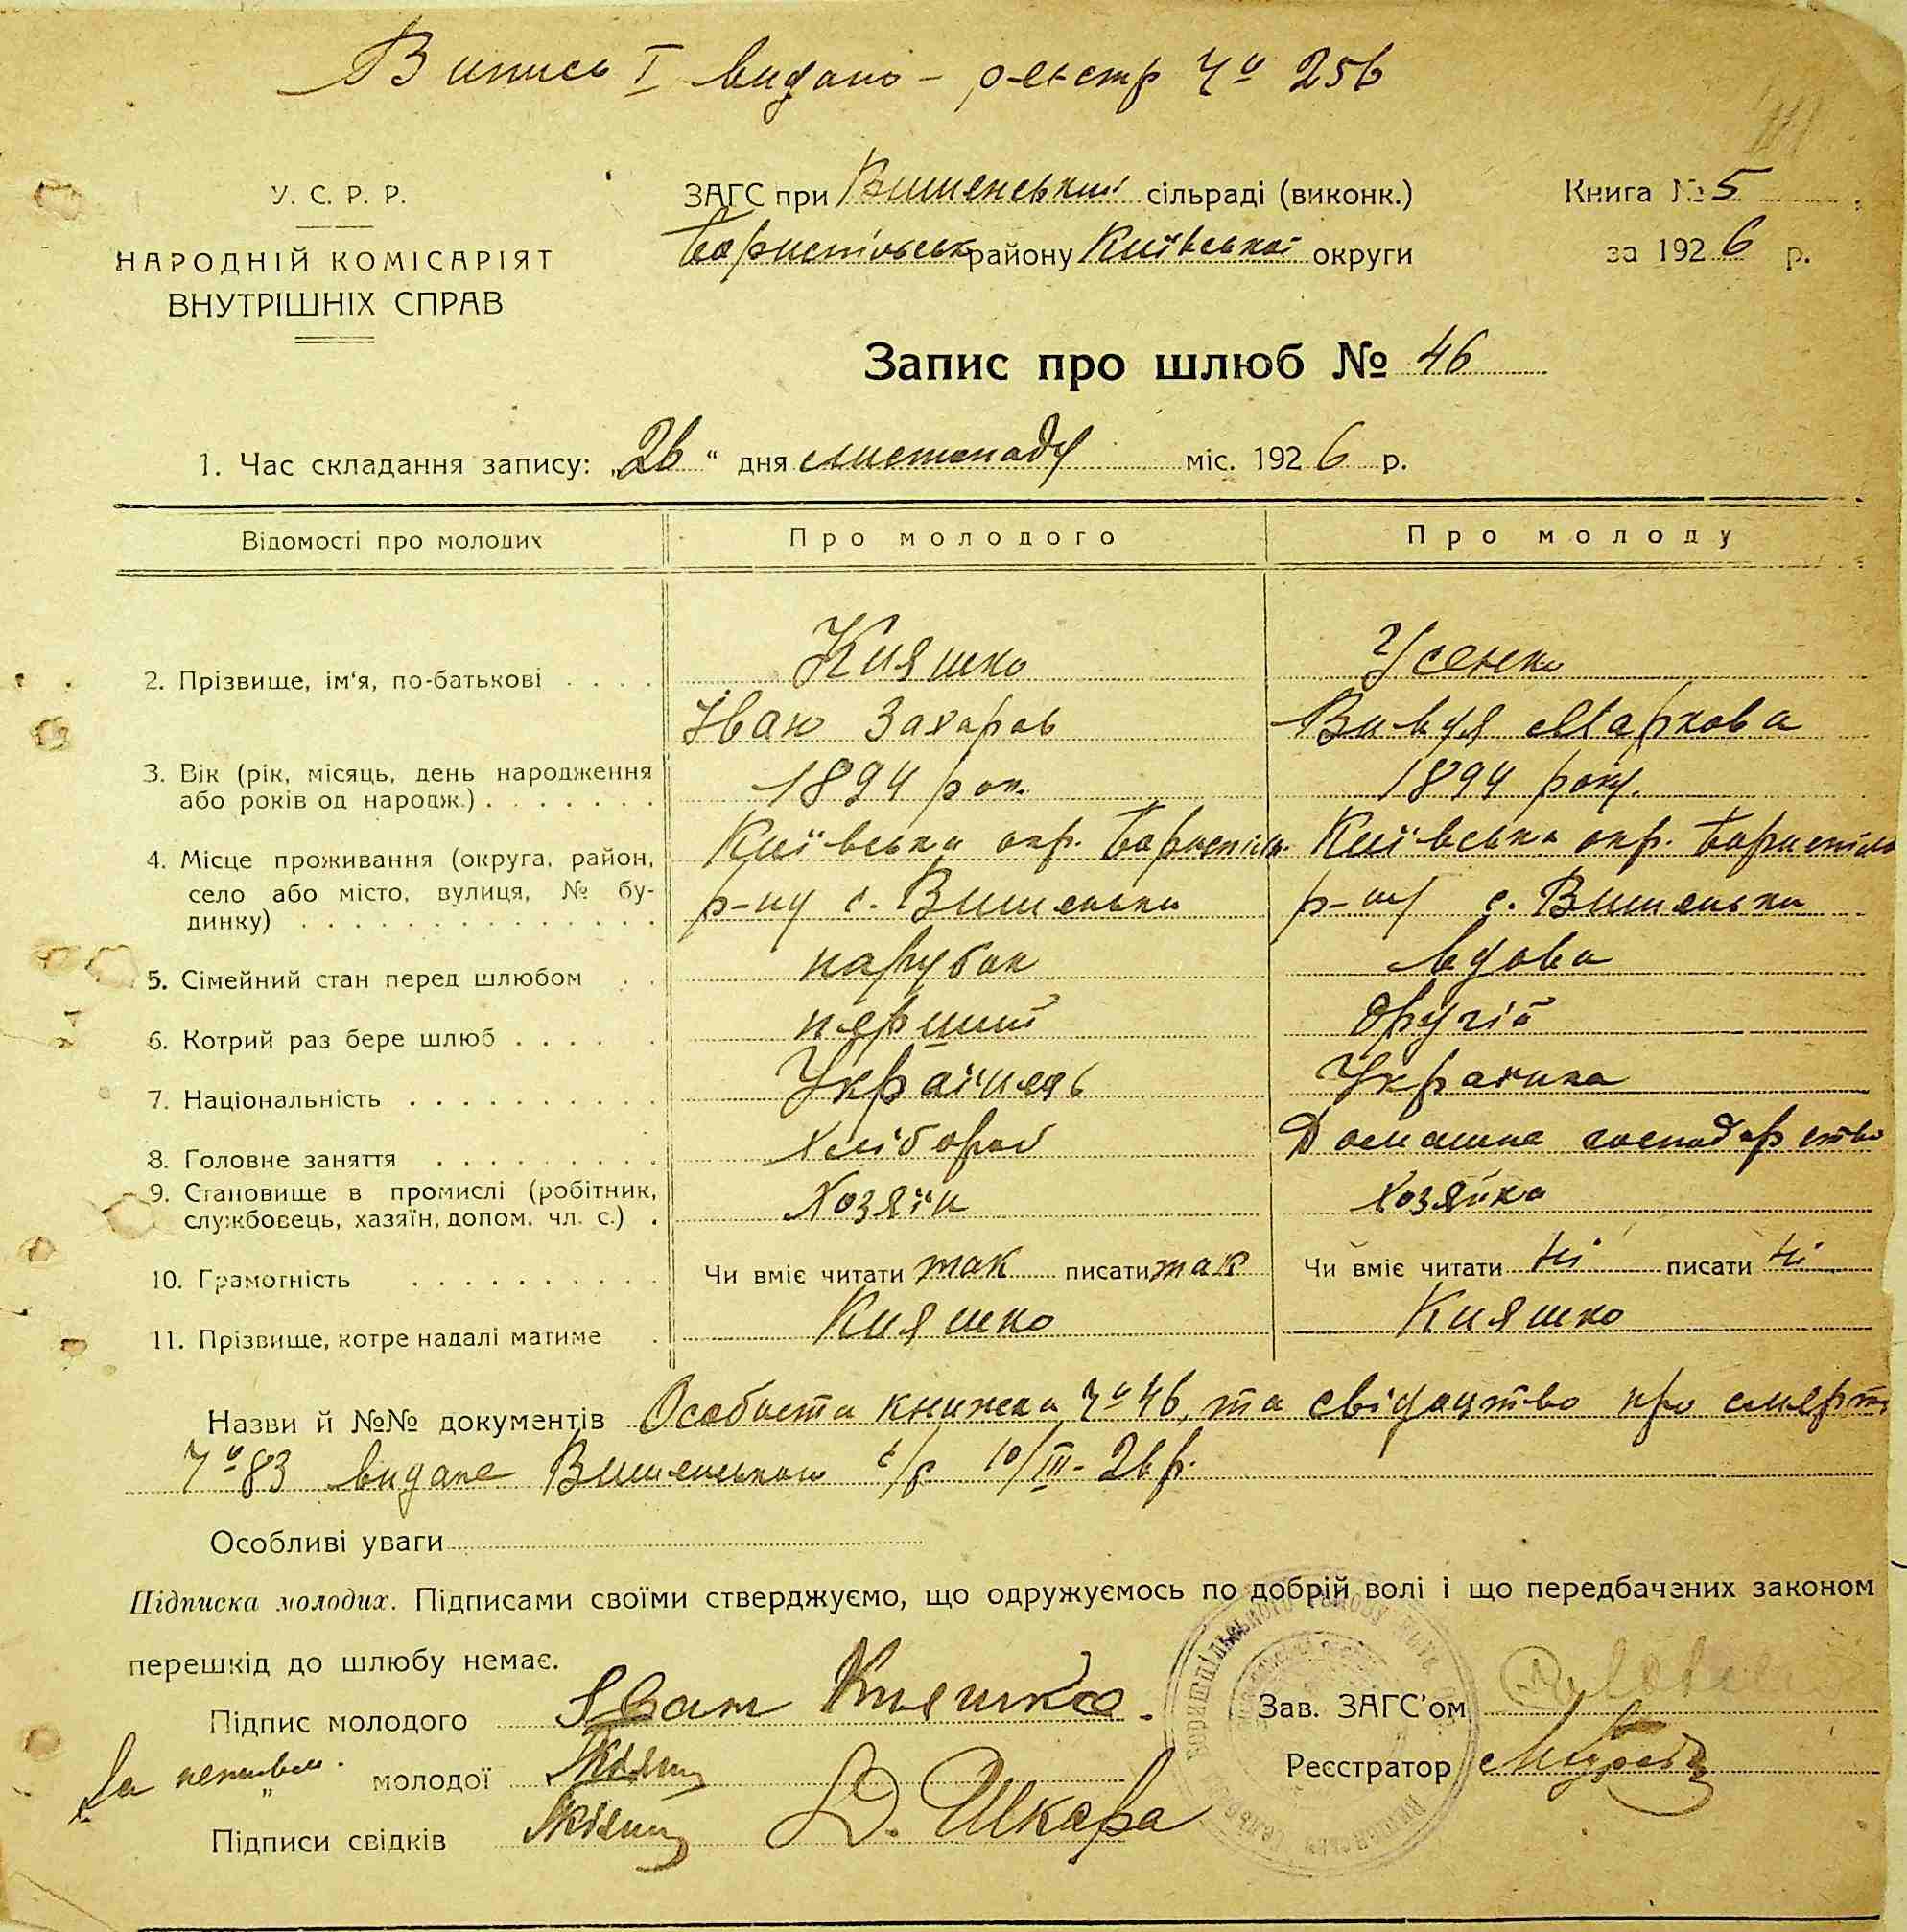 Випись І видано – реєстр № 256
У. С. Р. Р.
НАРОДНІЙ КОМІСАРІЯТ
ВНУТРІШНІХ СПРАВ
ЗАГС при Вишенський сільраді (виконк.)
Бориспільськ району Київської округи
Книга № 5
за 1926 р.
Запис про шлюб № 46
1. Час складання запису: „26“ дня листопаду міс. 1926 р.
Відомості про молодих
Про молодого
Про молоду
2. Прізвище, ім'я, по-батькові
Кияшко
Усенко
Іван Захаров
Маркова
3. Вік (рік, місяць, день народження
або років од народж.)
1894 рок.
1894 року.
4. Місце проживання (округа, район,
село або місто, вулиця, № бу-
динку)
Київська окр. Бориспіль.
р-ну с. Вишеньки
Київська окр. Бориспіль
р-ну с. Вишеньки
5. Сімейний стан перед шлюбом
парубок
вдова
6. Котрий раз бере шлюб
перший
другій
7. Національність
Українець
Українка
8. Головне заняття
хлібороб
Домашнє господарство
9. Становище в промислі (робітник,
службовець, хазяїн, допом. чл. с.)
Хозяїн
хозяйка
10. Грамотність
Чи вміє читати так писати так
Чи вміє читати ні писати ні
11. Прізвище, котре надалі матиме
Кияшко
Кияшко
Назви й №№ документів Особиста книжка № 46, та свідоцтво про смерть
№ 83 видане Вишенською с/р 10/III-26 р.
Особливі уваги
Підписка молодих. Підписами своїми стверджуємо, що одружуємось по добрій волі і що передбачених законом
перешкід до шлюбу немає.
Підпис молодого Іван Кияшко.
За неписьм. " молодої
Підписи свідків Д. Шкара
Зав. ЗАГС'ом
Реєстратор